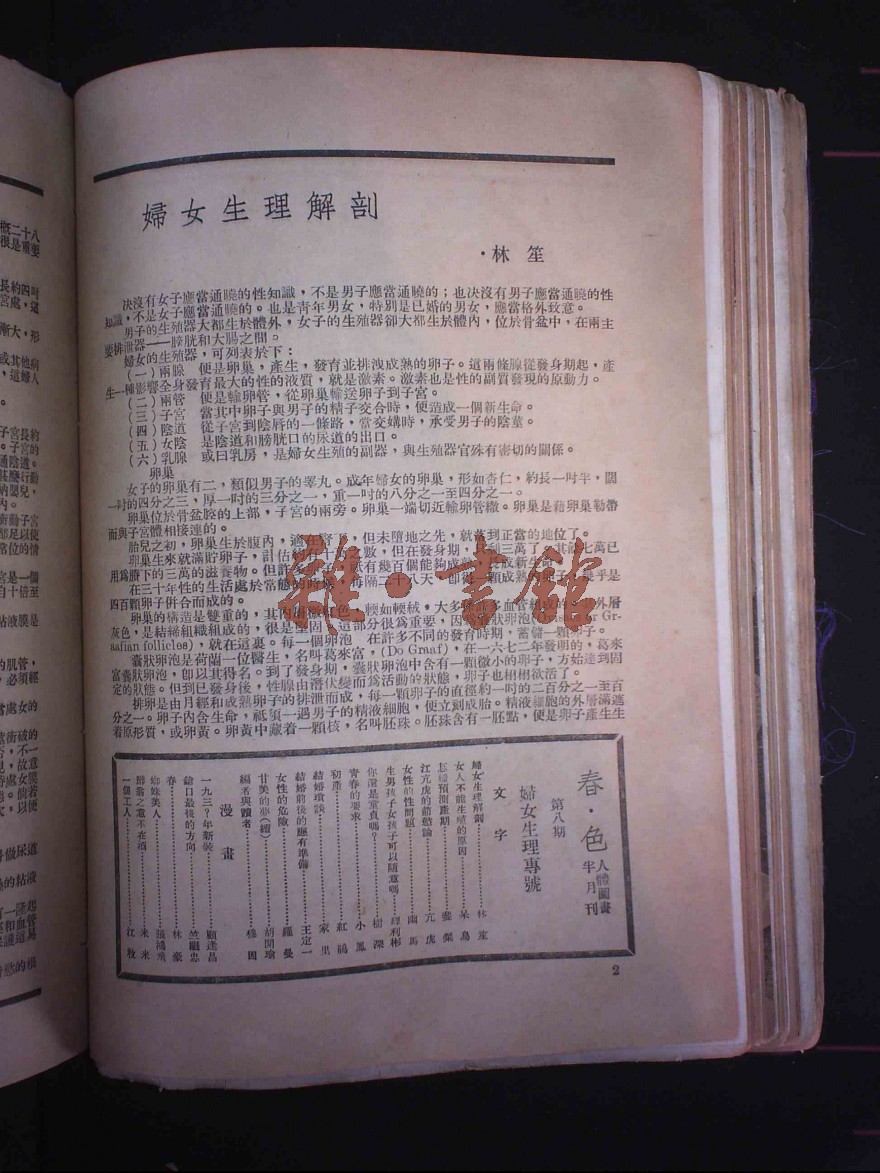 婦女生理解剖
·林笙
決沒有女子應當通曉的性知識，不是男子應當通曉的；也決沒有男子應當通曉的性
知識，不是女子應當通曉的。也是青年男女，特別是已婚的男女，應當格外致意。
男子的生殖器大都生於體外，女子的生殖器卻大都生於體內，位於骨盆中，在兩主
要排泄器——膀胱和大腸之間。
婦女的生殖器，可列表於下：
(一)兩腺　便是卵巢，產生，發育並排洩成熟的卵子。這兩條腺從發身期起，產
生一種影響全身發育最大的性的液質，就是激素。激素也是性的副質發現的原動力。
(二)兩管　便是輸卵管，從卵巢輸送卵子到子宮。
(三)子宮　當其中卵子與男子的精子交合時，便造成一個新生命。
(四)陰道　從子宮到陰唇的一條路，當交媾時，承受男子的陰莖。
(五)女陰　是陰道和膀胱口的尿道的出口。
(六)乳腺　或曰乳房，是婦女生殖的副器，與生殖器官殊有密切的關係。
卵巢
女子的卵巢有二，類似男子的睪丸。成年婦女的卵巢，形如杏仁，約長一吋半，闊
一吋的四分之三，厚一吋的三分之一，重一吋的八分之一至四分之一。
卵巢位於骨盆腔的上部，子宮的兩旁。卵巢一端切近輸卵管繖。卵巢是藉卵巢韌帶
而與子宮體相接連的。
胎兒之初，卵巢生於腹內，適在腎下，但未墮地之先，就落到正當的地位了。
卵巢生來就滿貯卵子，計估
數，但在發身期，
三萬了。其餘七萬已
用爲賸下的三萬的滋養物。但許
有幾百個能夠成熟，長成新生命。
在三十年性的生活處於常態的時候，每隔二十八天，卽從一顆成熟的卵子，幾乎是
四百顆卵子併合而成的。
卵巢的構造是雙重的，其內層橄紅色，輭如輭絨，大多
許多血管組成的。外層
灰色，是結締組織組成的，很是堅固。這部分很爲重要，因
囊狀卵泡
or Gr-
aafian follicles)，就在這裏。每一個卵泡　在許多不同的發育時期，蓄儲一顆卵子。
囊狀卵泡是荷蘭一位醫生，名叫葛來富，(Do Graaf)，在一六七二年發明的，葛來
富囊狀卵泡，卽以其得名。到了發身期，囊狀卵泡中含有一顆微小的卵子，方始達到固
定的狀態。但到已發身後，性腺由潛伏變而爲活動的狀態，卵子也栩栩欲活了。
排卵是由月經和成熟卵子的排泄而成，每一顆卵子的直徑約一吋的二百分之一至百
分之一。卵子內含生命，祗須一遇男子的精液細胞，便立刻成胎。精液細胞的外層滿遮
着原形質，或卵黃。卵黃中藏着一顆核，名叫胚珠。胚珠含有一胚點，便是卵子產生生
春·色
人體圖畫
半月刊
第八期
婦女生理專號
文字
婦女生理解剖……林笙
女人不能生殖的原因……呆鳥
怎樣預測產期……藍傑
江亢虎的節慾論……亢虎
女性的性問題……幽馬
生男孩子女孩子可以隨意嗎……繆利彬
你還是童貞嗎？……樹深
青春的要求……小鳳
初產……紅鵑
結婚瑣談……家里
結婚前後的應有準備……王定一
女性的危險……羅曼
甘美的夢(續)……胡閒瑜
編者與讀者……穆因
漫畫
一九三？年新裝……顧逢昌
鎗口最後的方向……竺繼忠
春……林豪
蜘蛛美人……張鴻飛
醉翁之意不在酒……米米
一個工人……江牧
2
雜·書館